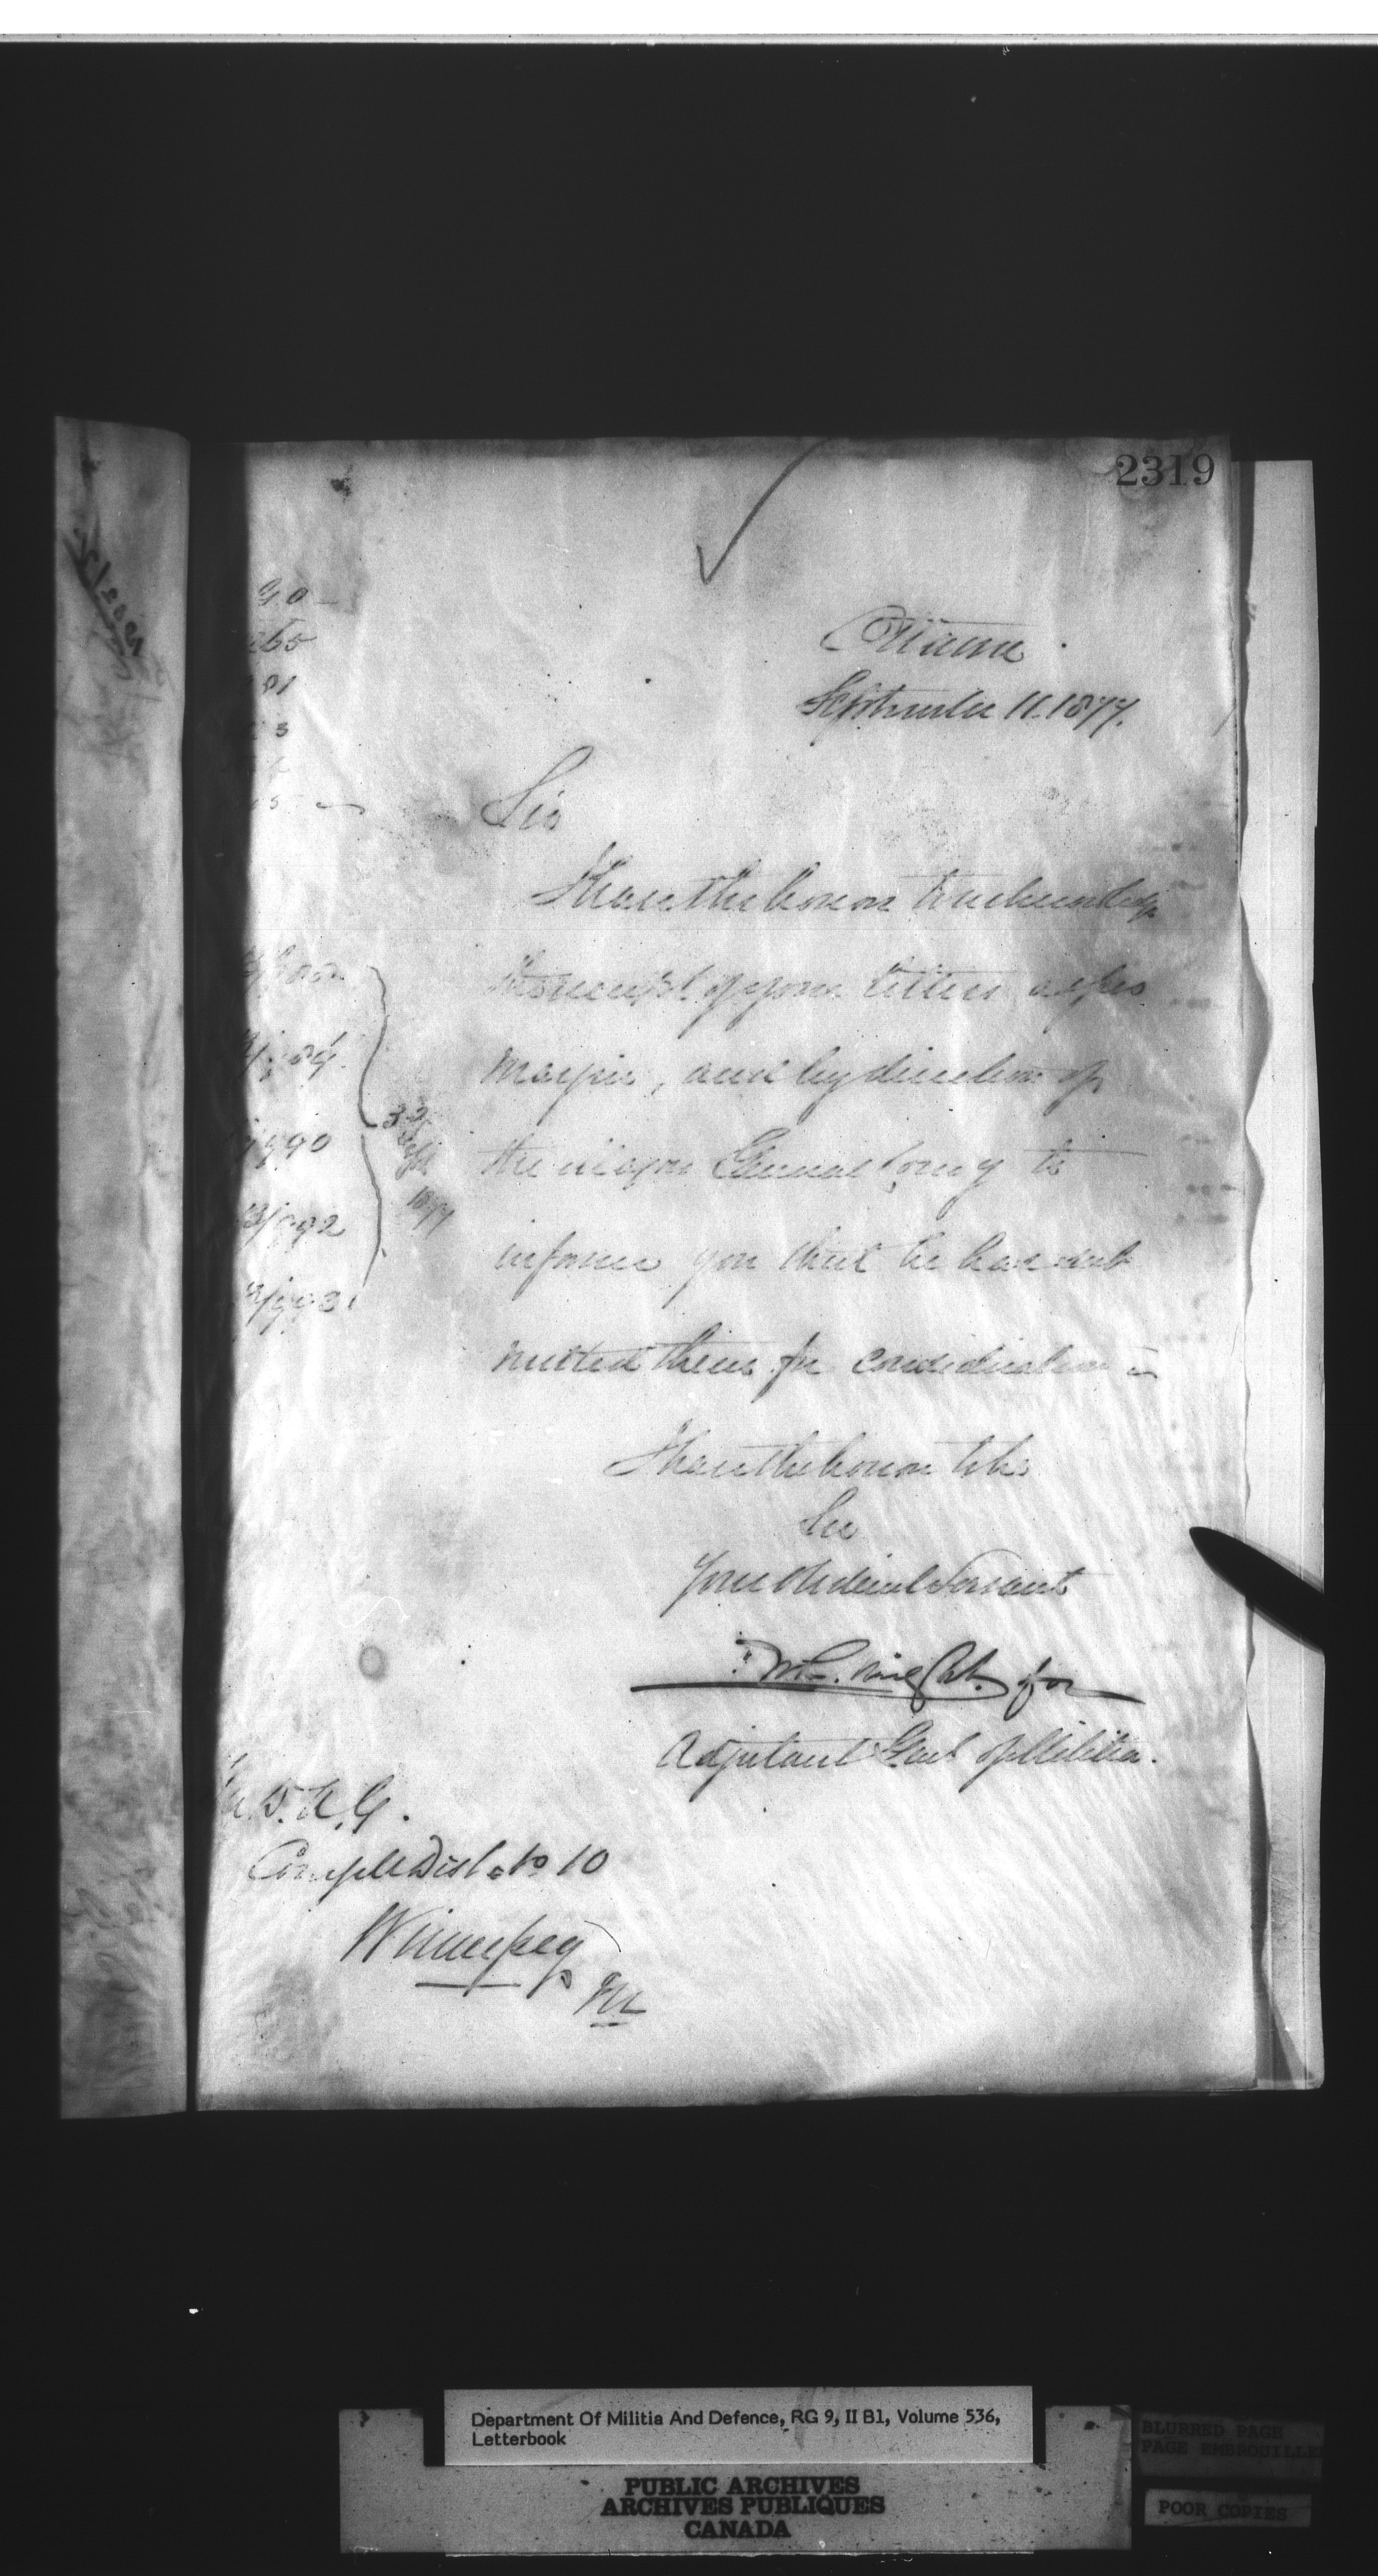 2319
Ottawa
September 11. 1877.
Sir
I have the honor to acknowledge
the receipt of your letters as per
margin, and by direction of
the Major General Comg to
inform you that he has sub
mitted them for consideration
I have the honor to be
Sir
Your Obedient Servant
for
Adjutant Genl of Militia.
265
81
790
3
Sept
1877
13/992
993
D. A. G.
Comg Mil Dist. No 10
Winnipeg
Department Of Militia And Defence, RG 9, II B1, Volume 536,
Letterbook
PUBLIC ARCHIVES
ARCHIVES PUBLIQUES
CANADA
BLURRED PAGE
PAGE EMBROUILLEE
POOR COPIES